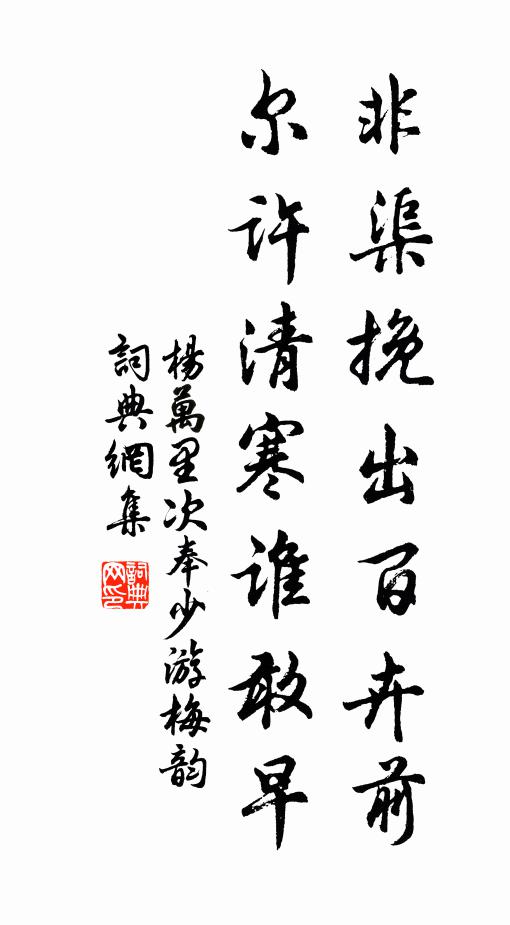 非渠挽出百卉前
尔许清寒谁敢早
楊萬里次奉少游梅韵
詞典網集
詞典网印